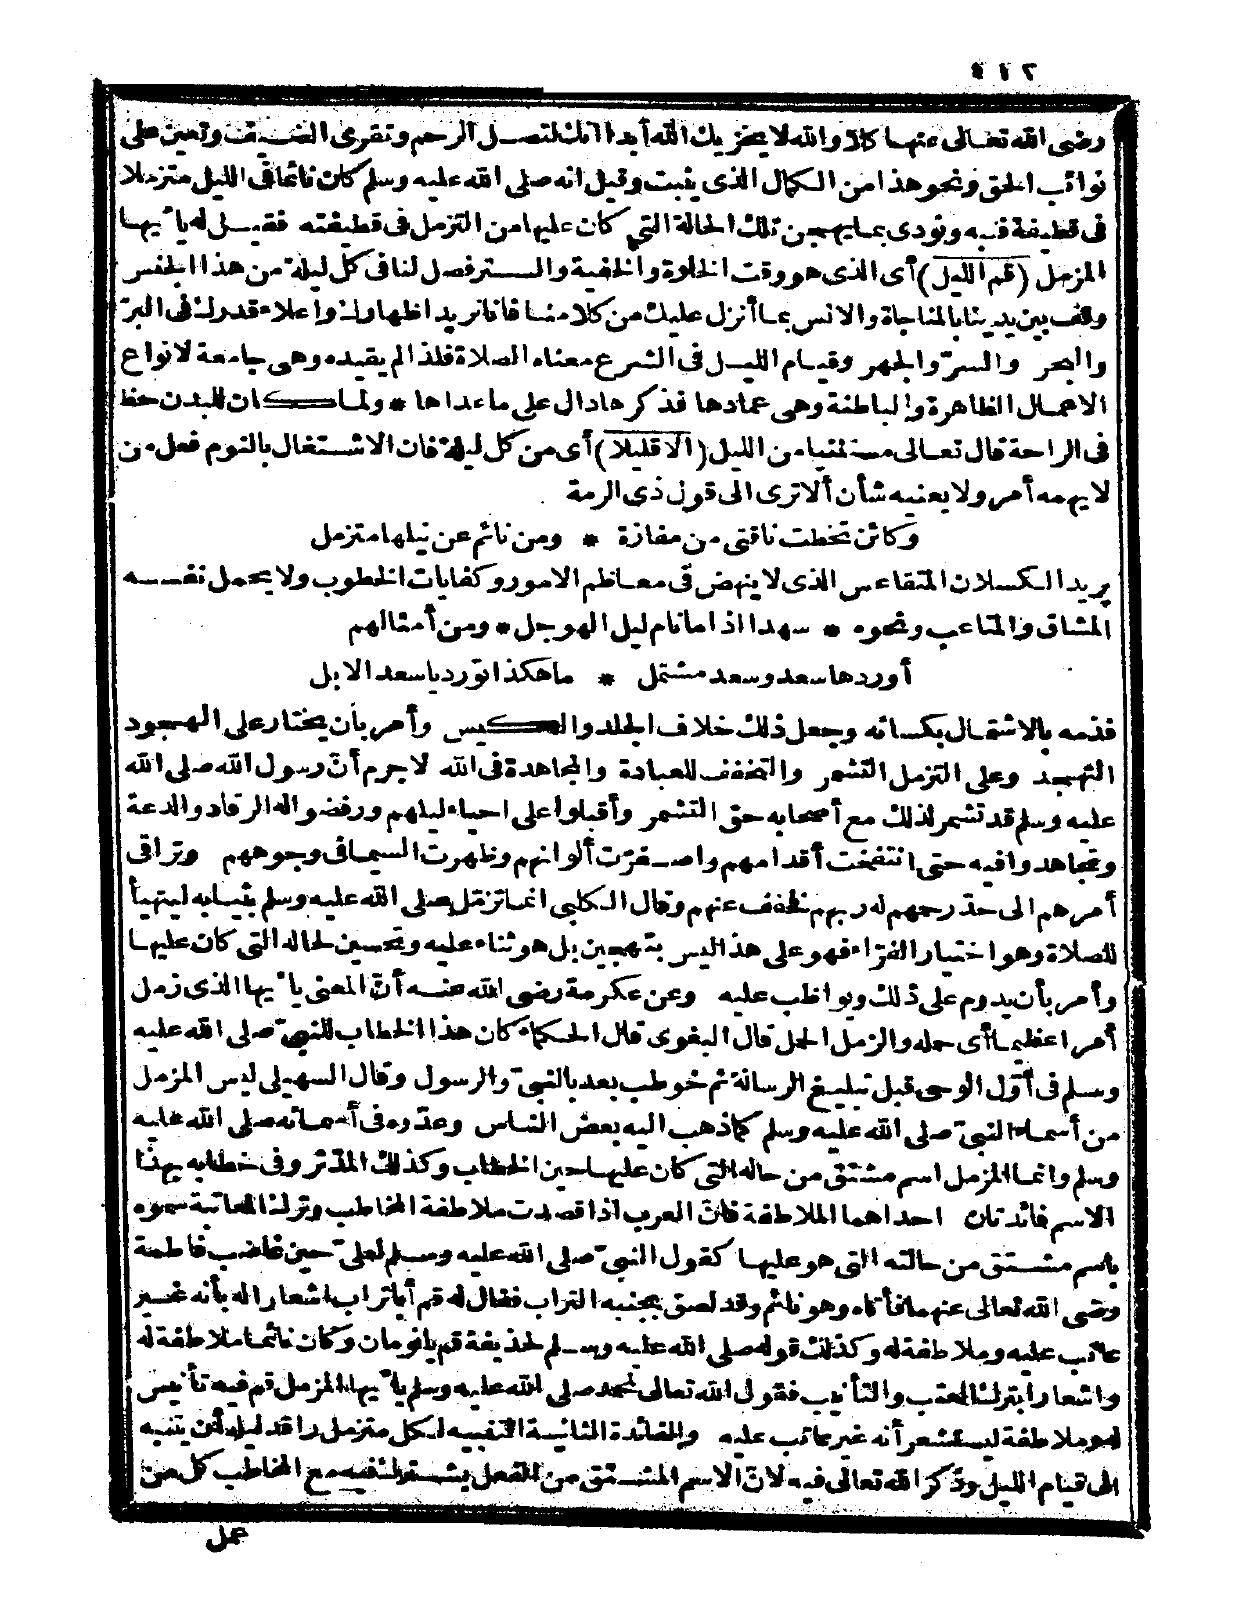 ٤١٢
رضى الله تعالى عنها كلا والله لا يخزيك الله أبدا انك لتصل الرحم وتقرى الضيف وتعين على
نوائب الحق ونحو هذا من الكمال الذى يثبت وقيل انه صلى الله عليه وسلم كان نائما فى الليل متزملا
فى قطيفة فنبه ونودى بما يهجن تلك الحالة التى كان عليها من التزمل فى قطيفته فقيل له يا أيها
المزمل (قم الليل) أى الذى هو وقت الخلوة والخفية والستر فصل لنا فى كل ليلة من هذا الجنس
وقف بين يدينا بالمناجاة والانس بما أنزل عليك من كلامنا فانا نريد اظهارك واعلاء قدرك فى البرّ
والبحر والسرّ والجهر وقيام الليل فى الشرع معناه الصلاة فلذا لم يقيده وهى جامعة لانواع
الاعمال الظاهرة والباطنة وهى عمادها فذكرها دال على ما عداها * ولما كان للبدن حظ
فى الراحة قال تعالى مستثنيا من الليل (الا قليلا) أى من كل ليلة فان الاشتغال بالنوم فعل من
لا يهمه أمر ولا يعنيه شأن ألا ترى الى قول ذى الرمة
وكائن تخطت ناقتى من مفازة * ومن نائم عن ليلها متزمل
يريد الكسلان المتقاعس الذى لا ينهض فى معاظم الامور وكفايات الخطوب ولا يحمل نفسه
المشاق والمتاعب ونحوه * سهدا اذا ما نام ليل الهوجل * ومن أمثالهم
أوردها سعد وسعد مشتمل * ما هكذا تورد يا سعد الابل
فذمه بالاشتمال بكسائه وجعل ذلك خلاف الجلد والكيس وأمر بأن يختار على الهجود
التهجد وعلى التزمل التشمر والتخفف للعبادة والمجاهدة فى الله لا جرم أنّ رسول الله صلى الله
عليه وسلم قد تشمر لذلك مع أصحابه حق التشمر وأقبلوا على احياء ليلهم ورفضوا له الرقاد والدعة
وتجاهدوا فيه حتى انتفخت أقدامهم واصفرّت ألوانهم وظهرت السيما فى وجوههم وتراقى
أمرهم الى حدّ رحمهم له ربهم فخفف عنهم وقال الكلبى انما تزمّل صلى الله عليه وسلم بثيابه ليتهيأ
للصلاة وهو اختيار الفرّاء فهو على هذا ليس بتهجين بل هو ثناء عليه وتحسين لحاله التى كان عليها
وأمر بأن يدوم على ذلك ويواظب عليه وعن عكرمة رضى الله عنه أنّ المعنى يا أيها الذى زمل
أمرا عظيما أى حمله والزمل الحمل قال البغوى قال الحكماء كان هذا الخطاب للنبىّ صلى الله عليه
وسلم فى أوّل الوحى قبل تبليغ الرسالة ثم خوطب بعد بالنبىّ والرسول وقال السهيلى ليس المزمل
من أسماء النبىّ صلى الله عليه وسلم كما ذهب اليه بعض الناس وعدّوه فى أسمائه صلى الله عليه
وسلم وانما المزمل اسم مشتق من حاله التى كان عليها حين الخطاب وكذلك المدّثر وفى خطابه بهذا
الاسم فائدتان احداهما الملاطفة فانّ العرب اذا قصدت ملاطفة المخاطب وترك المعاتبة سموه
باسم مشتق من حالته التى هو عليها كقول النبىّ صلى الله عليه وسلم لعلىّ حين غاضب فاطمة
رضى الله تعالى عنهما فأتاه وهو نائم وقد لصق بجنبه التراب فقال له قم أبا تراب اشعارا له بأنه غير
عاتب عليه وملاطفة له وكذلك قوله صلى الله عليه وسلم لحذيفة قم يا نومان وكان نائما ملاطفة له
واشعارا بترك العتب والتأنيب فقول الله تعالى لمحمد صلى الله عليه وسلم يا أيها المزمل قم فيه تأنيس
له وملاطفة ليستشعر أنه غير عاتب عليه والفائدة الثانية التنبيه لكل متزمل راقد ليله أن يتنبه
الى قيام الليل وذكر الله تعالى فيه لانّ الاسم المشتق من الفعل يشترك فيه مع المخاطب كل من
عمل